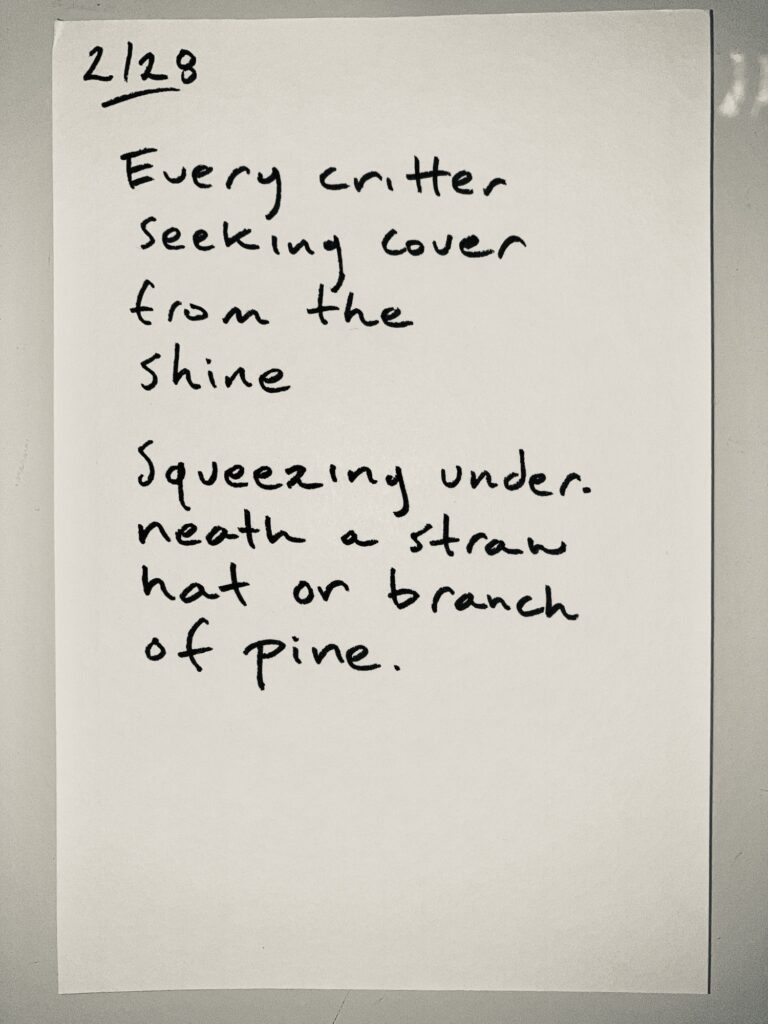 2/28
Every critter
seeking cover
from the
shine
Squeezing under.
neath a straw
hat or branch
of pine.